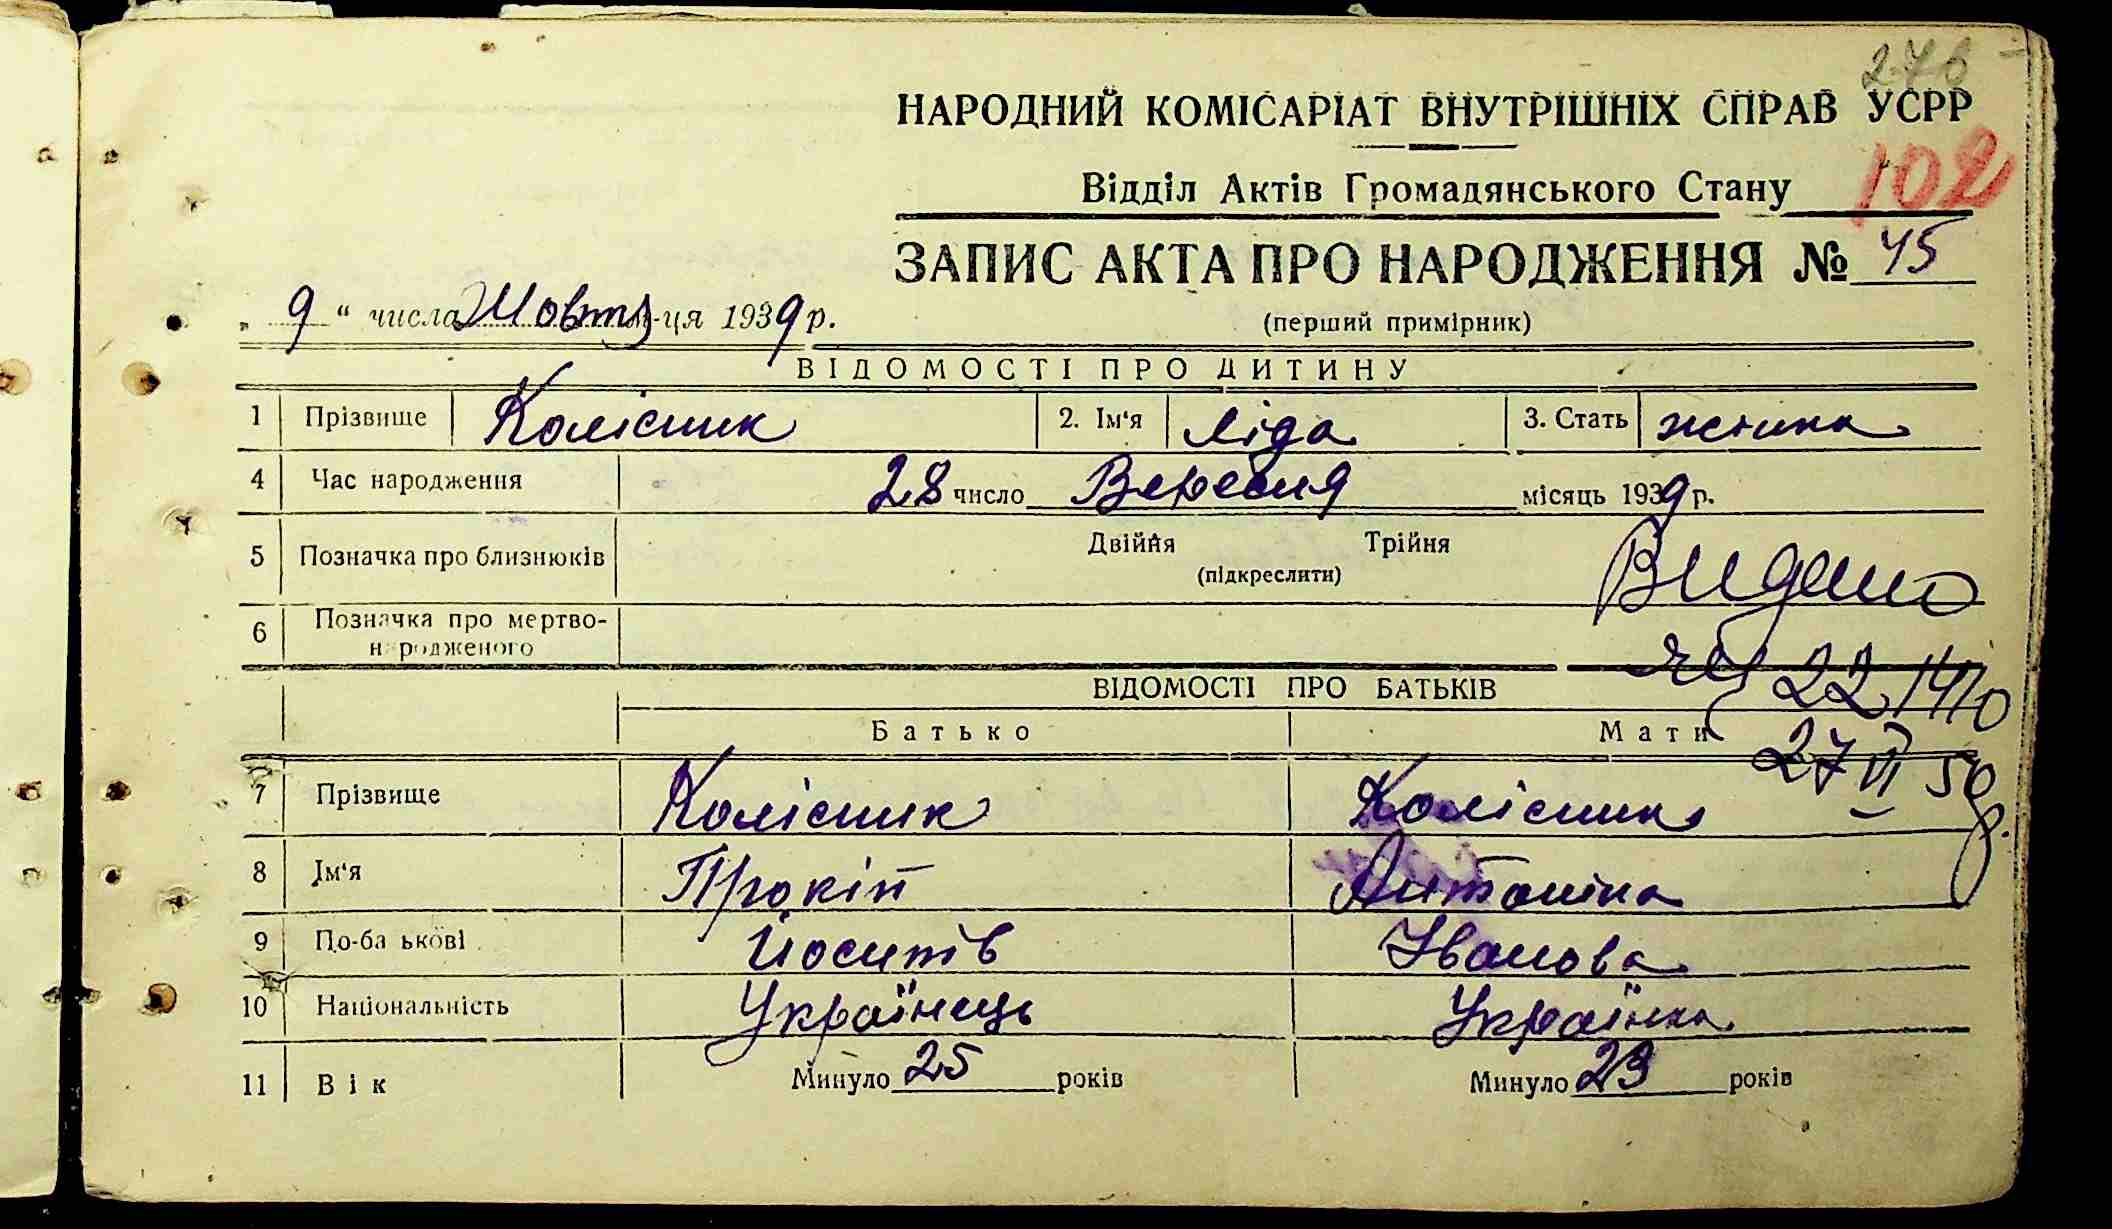 276
НАРОДНИЙ КОМІСАРІАТ ВНУТРІШНІХ СПРАВ УСРР
102
Відділ Актів Громадянського Стану
ЗАПИС АКТА ПРО НАРОДЖЕННЯ № 45
„ 9 “ числа Жовтя м-ця 1939 р.
(перший примірник)
ВІДОМОСТІ ПРО ДИТИНУ
1 Прізвище Колісник 2. Ім‘я Ліда 3. Стать жіника
4 Час народження 28 число Вересня місяць 1939 р.
5 Позначка про близнюків Двійня Трійня
(підкреслити)
Видано
6 Позначка про мертво-
народженого
22
ВІДОМОСТІ ПРО БАТЬКІВ
Батько Мати
27 VI 50
7 Прізвище Колісник Колісник
8 Ім‘я Прокіп Антоніна
9 По-ба ькові Йосипів Іванова
10 Національність Українець Українка
11 Вік Минуло 25 років Минуло 23 років